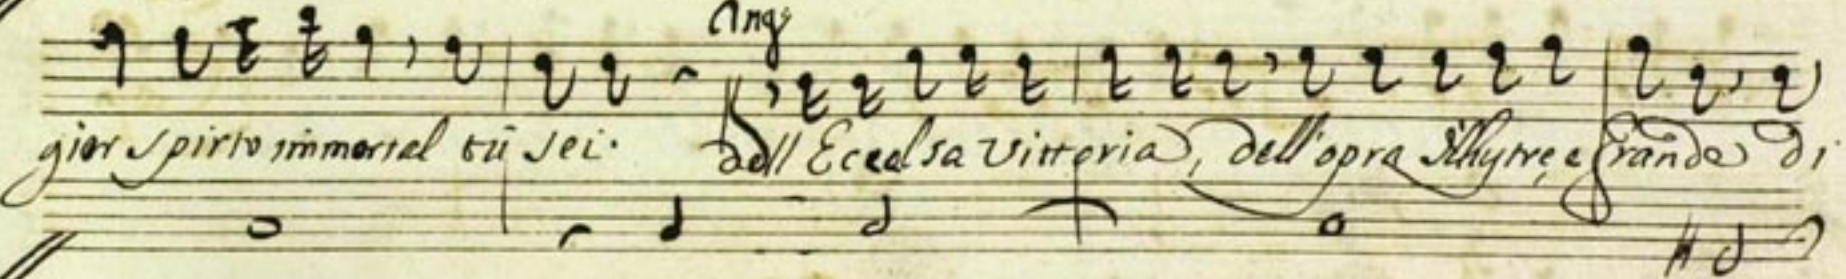 Ang
gior spirto immortal tù sei. dell Eccelsa Vittoria, dell'opra Illustre, e grande di